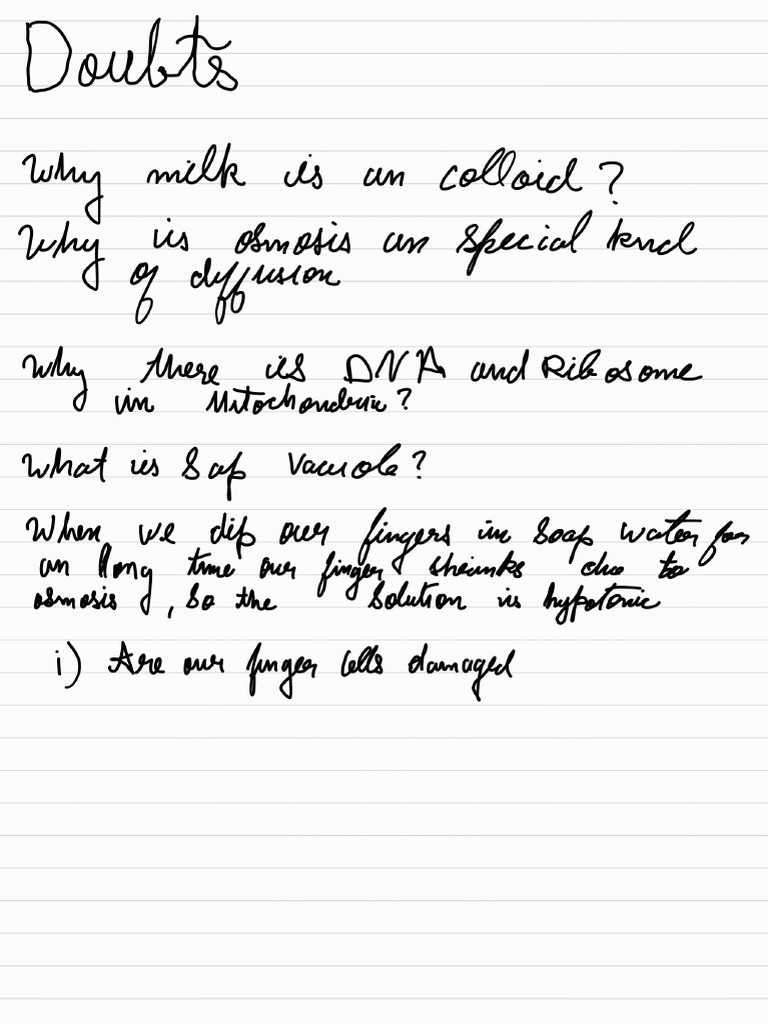 Doubts
Why milk is an colloid?
Why is osmosis an special kind
of diffusion
Why there is DNA and Ribosome
in Mitochondria?
What is Sap Vacuole?
When we dip our fingers in soap water for
an long time our finger shrinks due to
osmosis, So the solution is hypotonic
i) Are our finger cells damaged